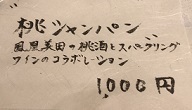 桃シャンパン
鳳凰美田の桃酒とスパークリング
ワインのコラボレーション
1000円